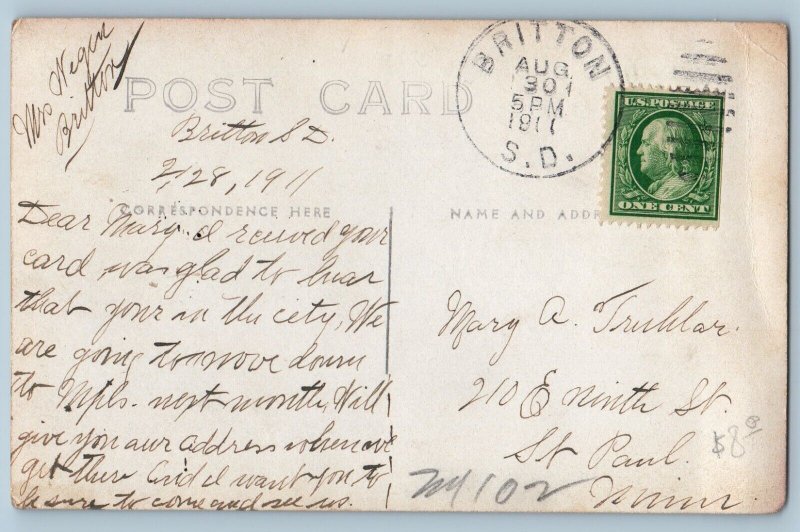 Mrs Wegen
Britton
POST CARD
BRITTON
AUG
30
5 PM
1911
S.D.
U.S. POSTAGE
ONE CENT
Britton S D.
28, 1911
CORRESPONDENCE HERE
NAME AND ADDR
Dear Mary. I received your
card was glad to hear
that your in the city, We
are going to move down
to Mpls. next month, Will
give you our address when we
get there and I want you to
be sure to come and see us.
Mary A. Truhlar.
210 E ninth St.
St Paul.
Minn.
$8
102